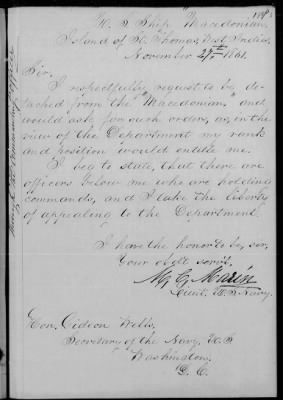 U. S. Ship "Macedonian,"
Island of St. Thomas, West Indies,
November 27th 1861.
Sir,
I respectfully request to be de-
tached from the "Macedonian," and
would ask for such orders, as, in the
view of the Department my rank
and position would entitle me.
I beg to state, that there are
officers below me who are holding
commands, and I take the liberty
of appealing to the Department.
I have the honor to be, sir,
Your obdt servt.
M. C. Marin
Lieut. U. S. Navy.
Hon. Gideon Wells,
Secretary of the Navy, U. S
Washington,
D. C.